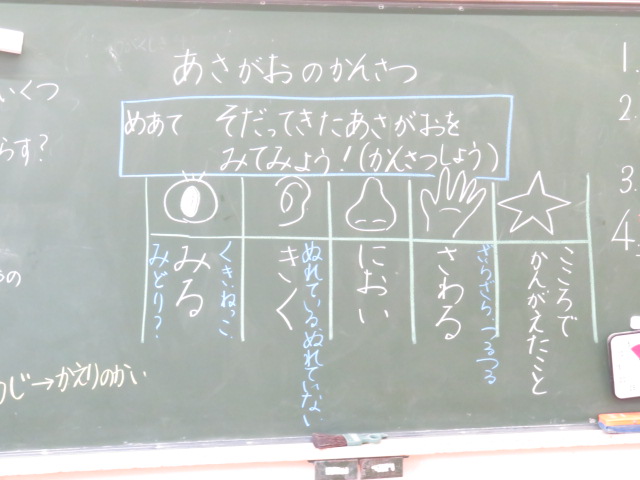 あさがおのかんさつ
めあて そだってきたあさがおを
みてみよう!(かんさつしょう)
くき、ねっこ
みる
みどり?
きく
におい
ざらざら、つるつる
さわる
ぬれている、ぬれていない
こころで
かんがえたこと
いくつ
らす?
じ→かえりのかい
1.
2.
3.
4.